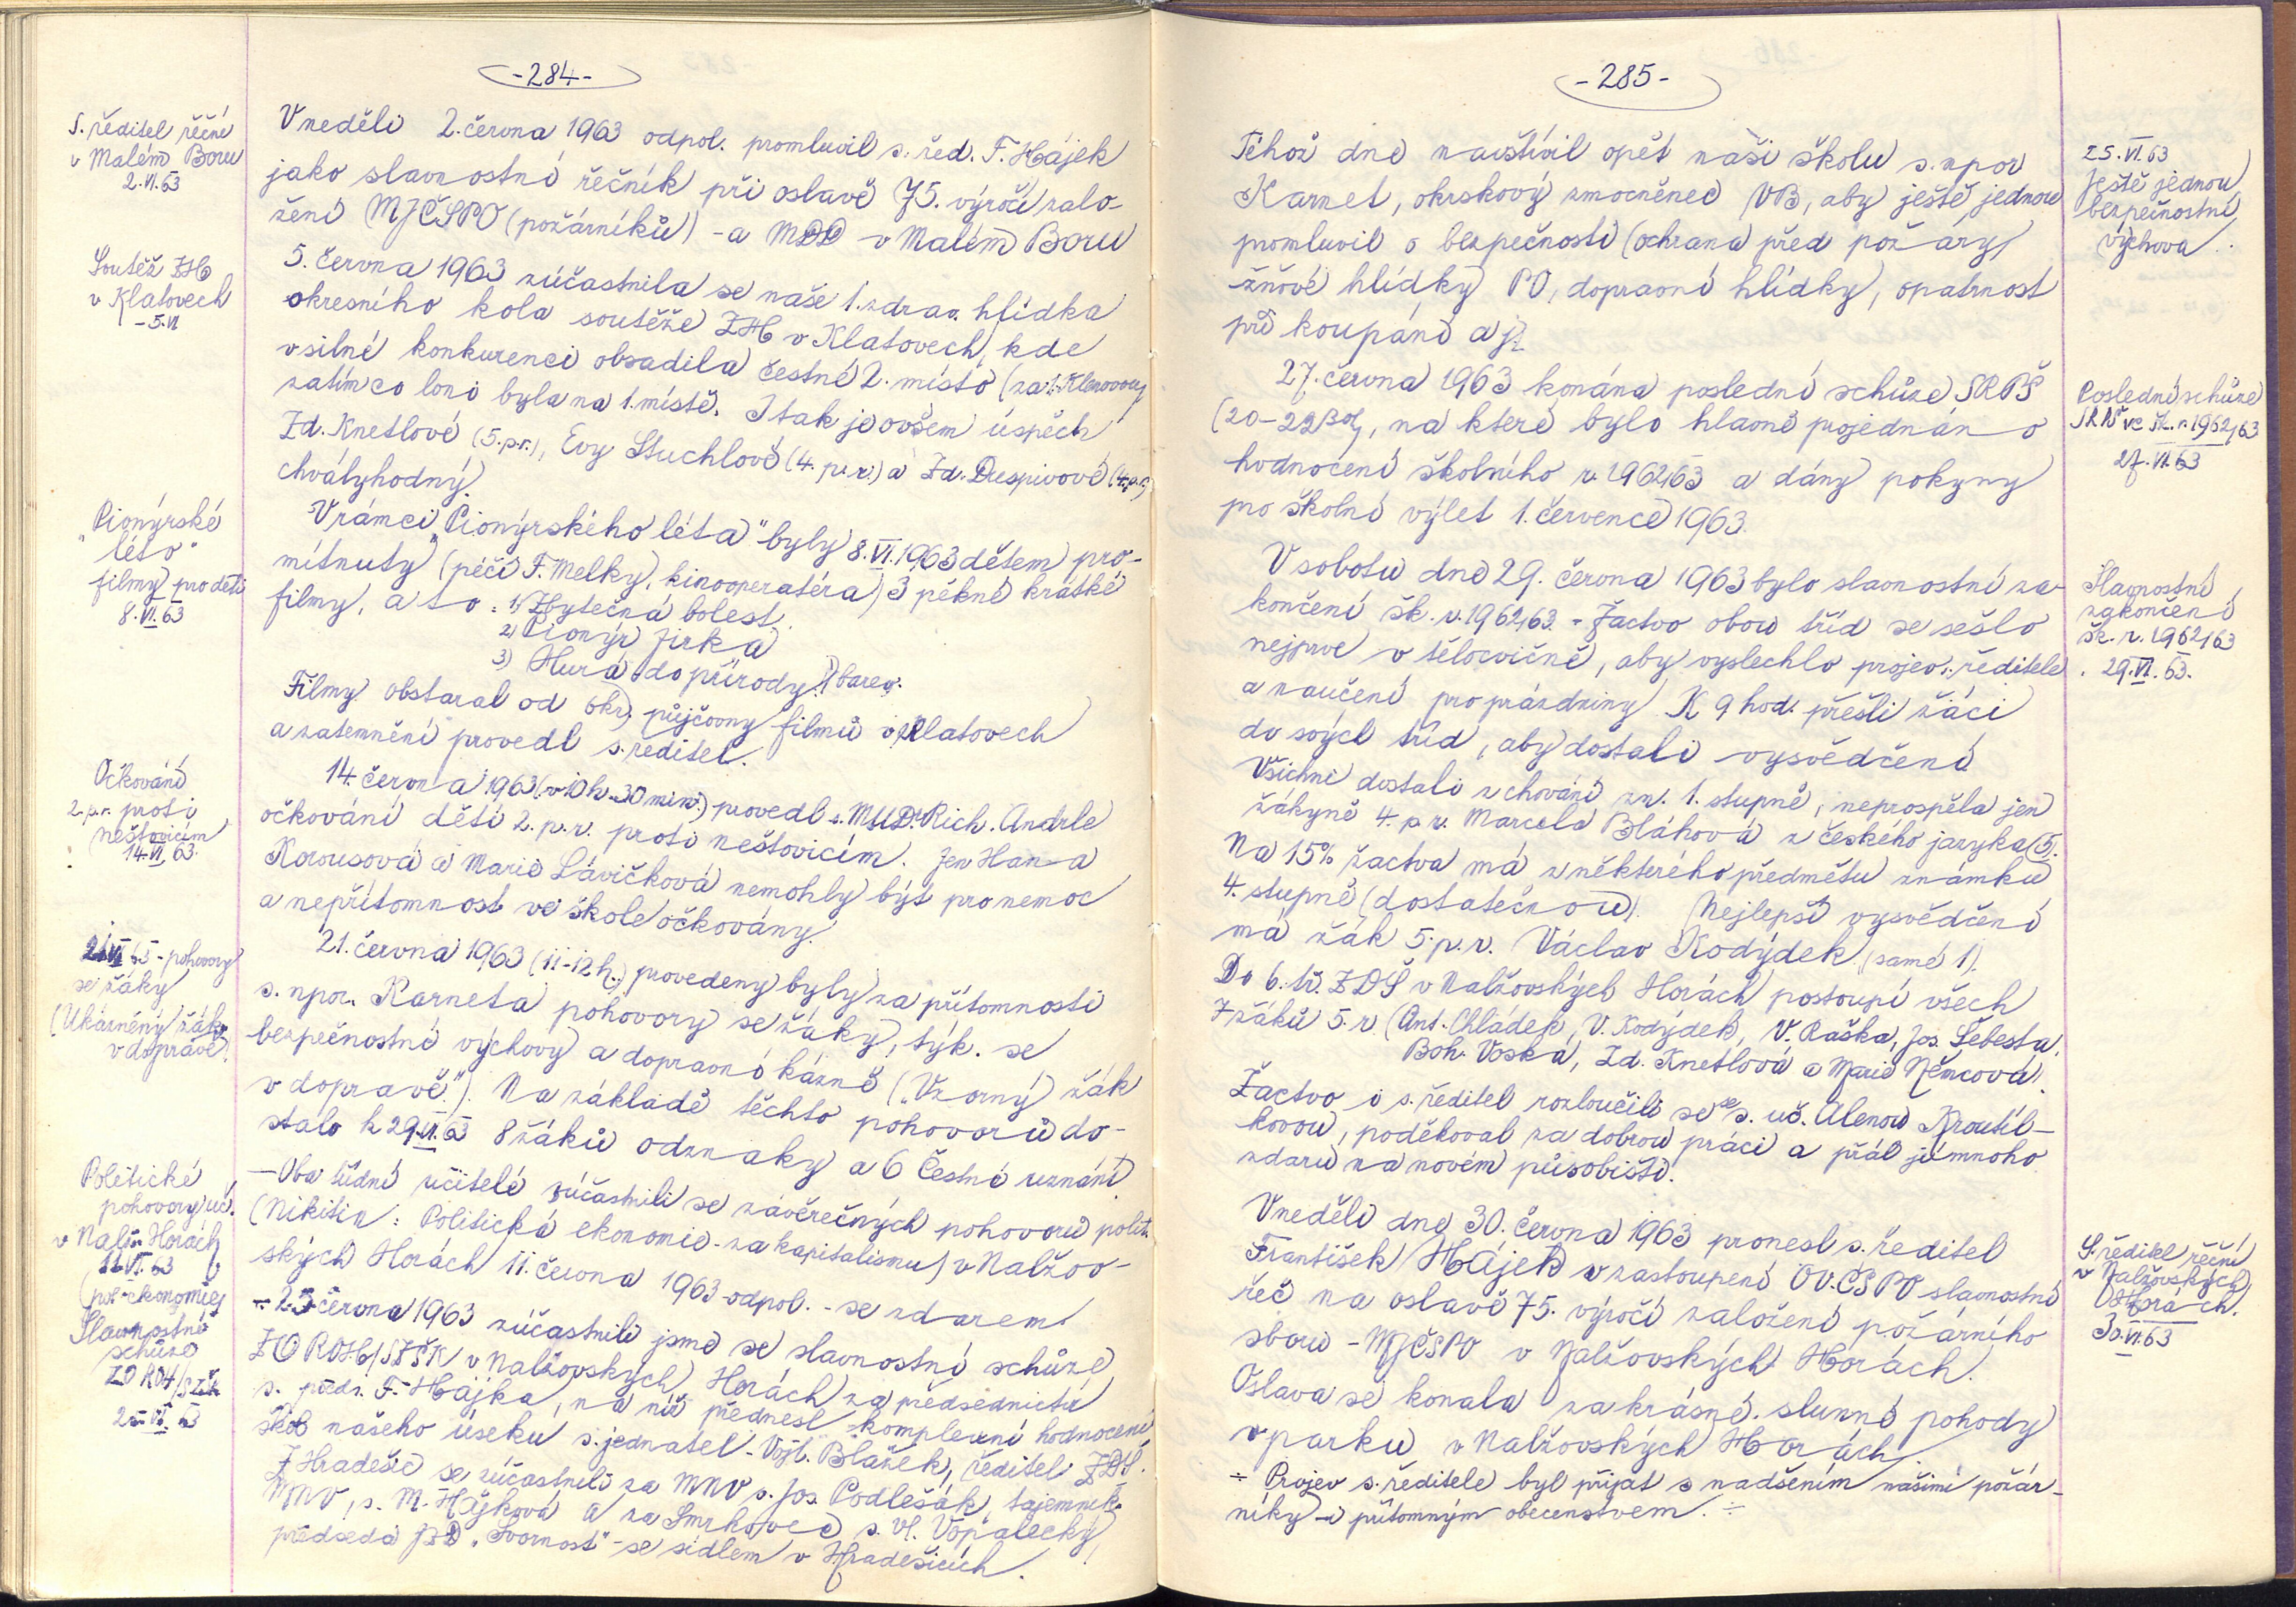 -284-
S. ředitel řeční
v Malém Boru
2.VI.63
V neděli 2. června 1963 odpol. promluvil s. řed. F. Hájek
jako slavnostní řečník při oslavě 75. výročí zalo-
žení MJČSPO (požárníků) - a MDD v Malém Boru
Soutěž ZH
v Klatovech
- 5.VI
5. června 1963 zúčastnila se naše 1. zdrav. hlídka
okresního kola soutěže ZH v Klatovech, kde
v silné konkurenci obsadila čestné 2. místo (za 1. Klenovou)
zatím co loni byla na 1. místě. I tak je ovšem úspěch
Zd. Knetlové (5.p.r.), Evy Stuchlové (4.p.r.) a Zd. Duspivové (4.p.r.)
chvályhodný.
Pionýrské
"léto"
filmy pro děti
8.VI.63
V rámci "Pionýrského léta" byly 8.VI.1963 dětem pro-
mítnuty (péčí F. Melky, kinooperatéra) 3 pěkné krátké
filmy, a to: 1) Zbytečná bolest.
2) Pionýr Jirka
3) Hurá do přírody! } barev.
Filmy obstaral od okr. půjčovny filmů v Klatovech
a zatemnění provedl s. ředitel.
Očkování
2.p.r. proti
neštovicím
14.VI.63.
14. června 1963 (v 10 h. 30 min.) provedl s. MUDr Rich. Andrle
očkování dětí 2.p.r. proti neštovicím. Jen Hana
Korousová a Marie Lávičková nemohly být pro nemoc
a nepřítomnost ve škole očkovány.
21.VI.63 - pohovory
se žáky
(Ukázněný žák
v dopravě)
21. června 1963 (11-12 h.) provedeny byly za přítomnosti
s. npor. Karneta pohovory se žáky, týk. se
bezpečnostní výchovy a dopravní kázně ("Vzorný žák
v dopravě"). Na základě těchto pohovorů do-
stalo k 29.VI.63 8 žáků odznaky a 6 Čestné uznání.
Politické
pohovory uč.
v Nalž. Horách
11.VI.63
(pol. ekonomie)
- Oba třídní učitelé zúčastnili se závěrečných pohovorů polit.
(Nikitin: Politická ekonomie - za kapitalismu) v Nalžov-
ských Horách 11. června 1963 odpol. - se zdarem.
Slavnostní
schůze
ZO ROH/SZŠK
25.VI.63
- 25 června 1963 zúčastnili jsme se slavnostní schůze
ZO ROH/SZŠK v Nalžovských Horách za předsednictví
s. předs. F. Hájka, na níž přednesl komplexní hodnocení
škol našeho úseku s. jednatel - Vojt. Blažek, ředitel ZDŠ.
Z Hradešic se zúčastnili za MNV s. Jos. Podlešák, tajemník
MNV, s. M. Hájková a za Smrkovec s. Vl. Vopálecký,
předseda JZD "Svornost" - se sídlem v Hradešicích.
-285-
25.VI.63
Ještě jednou
bezpečnostní
výchova.
Téhož dne navštívil opět naši školu s. npor
Karnet, okrskový zmocněnec VB, aby ještě jednou
promluvil o bezpečnosti (ochrana před požáry,
žňové hlídky PO, dopravní hlídky, opatrnost
při koupání aj.).
Poslední schůze
SRPŠ ve šk. r. 1962/63
27.VI.63
27. června 1963 konána poslední schůze SRPŠ
(20-22 hod), na které bylo hlavně projednáno
hodnocení školního r. 1962/63 a dány pokyny
pro školní výlet 1. července 1963.
Slavnostní
zakončení
šk. r. 1962/63
29.VI.63.
V sobotu dne 29. června 1963 bylo slavnostní za-
končení šk. r. 1962/63. - Žactvo obou tříd se sešlo
nejprve v tělocvičně, aby vyslechlo projev s. ředitele
a naučení pro prázdniny. K 9 hod. přešli žáci
do svých tříd, aby dostali vysvědčení.
Všichni dostali z chování zn. 1. stupně, neprospěla jen
žákyně 4.p.r. Marcela Bláhová z českého jazyka (5).
Na 15% žactva má z některého předmětu známku
4. stupně (dostatečnou). Nejlepší vysvědčení
má žák 5.p.r. Václav Kodýdek (samé 1).
Do 6. tř. ZDŠ v Nalžovských Horách postoupí všech
7 žáků 5. r. (Ant. Chládek, V. Kodýdek, V. Raška, Jos. Šebesta,
Boh. Voská, Zd. Knetlová a Marie Němcová).
Žactvo i s. ředitel rozloučili se se s. uč. Alenou Kroutil-
kovou, poděkoval za dobrou práci a přál jí mnoho
zdaru na novém působišti.
S. ředitel řeční
v Nalžovských
Horách.
30.VI.63
V neděli dne 30. června 1963 pronesl s. ředitel
František Hájek v zastoupení OV.ČSPO slavnostní
řeč na oslavě 75. výročí založení požárního
sboru - MJČSPO v Nalžovských Horách.
Oslava se konala za krásné slunné pohody
v parku v Nalžovských Horách.
- Projev s. ředitele byl přijat s nadšením našimi požár-
níky - i přítomným obecenstvem. -